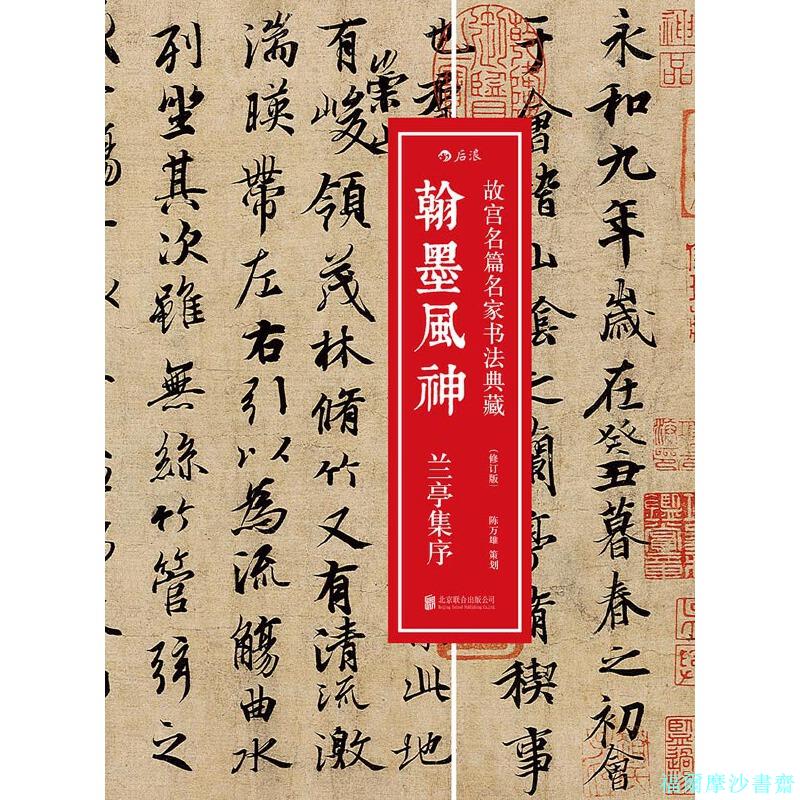 永和九年歲在癸丑暮春之初會
于會稽山陰之蘭亭脩稧事
也
此地
有崇山峻領茂林脩竹又有清流激
湍暎帶左右引以為流觴曲水
列坐其次雖無絲竹管弦之
神品
后浪
故宫名篇名家书法典藏
(修订版)
陈万雄 策划
翰墨風神
兰亭集序
北京联合出版公司
Beijing United Publishing Co.,Ltd.
福爾摩沙書齋